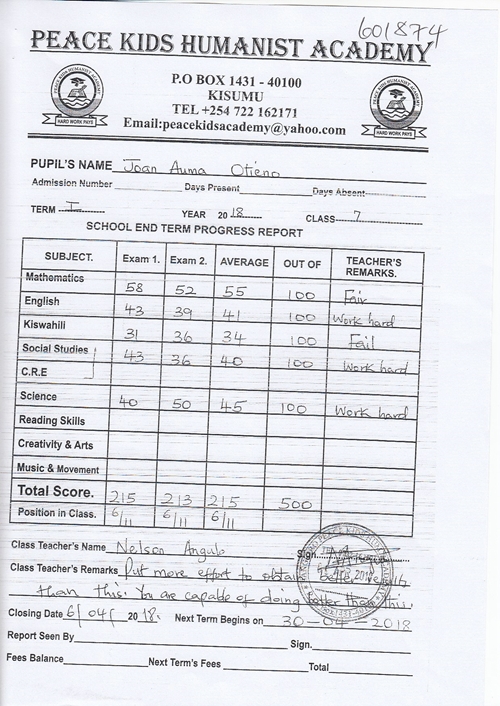 601874
PEACE KIDS HUMANIST ACADEMY
P.O BOX 1431 - 40100
KISUMU
TEL +254 722 162171
Email:peacekidsacademy@yahoo.com
HARD WORK PAYS
HARD WORK PAYS
PUPIL'S NAME Joan Auma Otieno
Admission Number Days Present Days Absent
TERM I YEAR 2018 CLASS 7
SCHOOL END TERM PROGRESS REPORT
SUBJECT. Exam 1. Exam 2. AVERAGE OUT OF TEACHER'S REMARKS.
Mathematics 58 52 55 100 Fair
English 43 39 41 100 Work hard
Kiswahili 31 36 34 100 Fail
Social Studies 43 36 40 100 Work hard
C.R.E
Science 40 50 45 100 Work hard
Reading Skills
Creativity & Arts
Music & Movement
Total Score. 215 213 215 500
Position in Class. 6/11 6/11 6/11
Class Teacher's Name Nelson Angulo Sign.
Class Teacher's Remarks Put more effort to obtain better results
than this. You are capable of doing better than this.
Closing Date 6/04/2018. Next Term Begins on 30-04-2018
Report Seen By Sign.
Fees Balance Next Term's Fees Total